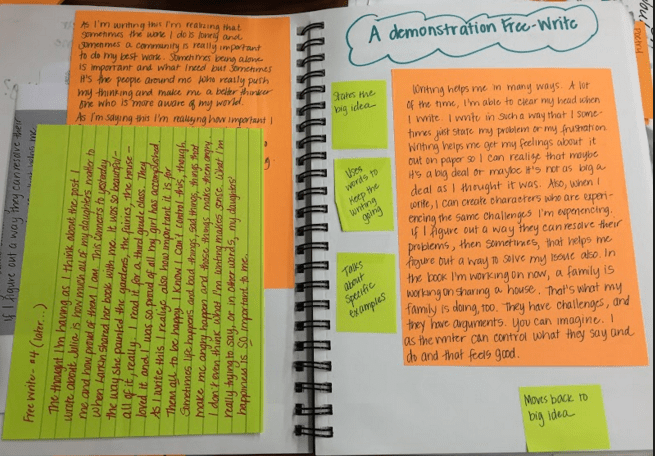 As I'm writing this I'm realizing that
sometimes the work I do is lonely and
sometimes a community is really important
to do my best work. Sometimes being alone
is important and what I need but sometimes
it's the people around me who really push
my thinking and make me a better thinker
one who is more aware of my world.
As I'm saying this I'm realizing how important I
If I figure out a way they can resolve their
Free Write - #4 (later...)
The thought I'm having as I think about the post I
wrote about Julia is how much all of my daughters matter to
me and how proud of them I am. This connects to yesterday
when Larkin shared her book with me. It was so beautiful-
the way she painted the gardens, the fairies, the
all of it, really. I read it for a third grade class. They
loved it and I was so proud of all my girl has accomplished
As I write this I realize also how important it is for
them all to be happy. I know I can't control this, though.
Sometimes life happens and bad things, sad things, things that
make me angry happen and those things make them angry.
I don't even think what I'm writing makes sense. What I'm
really trying to say, or in other words, my daughters'
happiness is SO important to me.
A demonstration Free-Write
States the
big idea
Uses
words to
keep the
writing
going
Talks
about
specific
examples
Writing helps me in many ways. A lot
of the time, I'm able to clear my head when
I write. I write in such a way that I some-
times just state my problem or my frustration.
Writing helps me get my feelings about it
out on paper so I can realize that maybe
it's a big deal or maybe it's not as big a
deal as I thought it was. Also, when I
write, I can create characters who are experi-
encing the same challenges I'm experiencing.
If I figure out a way they can resolve their
problems, then sometimes, that helps me
figure out a way to solve my issue also. In
the book I'm working on now, a family is
working on sharing a house. That's what my
family is doing, too. They have challenges, and
they have arguments. You can imagine. I
as the writer can control what they say and
do and that feels good.
Moves back to
big idea